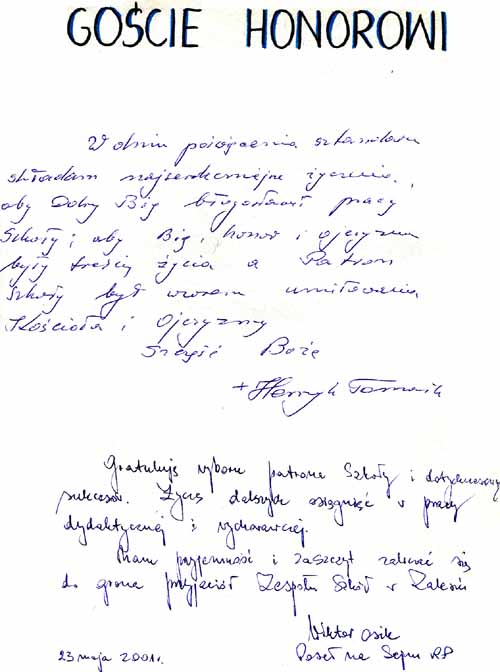 GOŚCIE HONOROWI
W dniu poświęcenia sztandaru
składam najserdeczniejsze życzenia,
aby Dobry Bóg błogosławił pracy
Szkoły i aby Bóg, honor i ojczyzna
były treścią życia a Patron
Szkoły był wzorem umiłowania
Kościoła i Ojczyzny
Szczęść Boże
+ Henryk Tomasik
Gratuluję wyboru patrona Szkoły i dotychczasowych
sukcesów. Życzę dalszych osiągnięć w pracy
dydaktycznej i wychowawczej.
Mam przyjemność i zaszczyt zaliczać się
do grona przyjaciół Zespołu Szkół w
Wiktor Osik
Poseł na Sejm RP
23 maja 2001r.